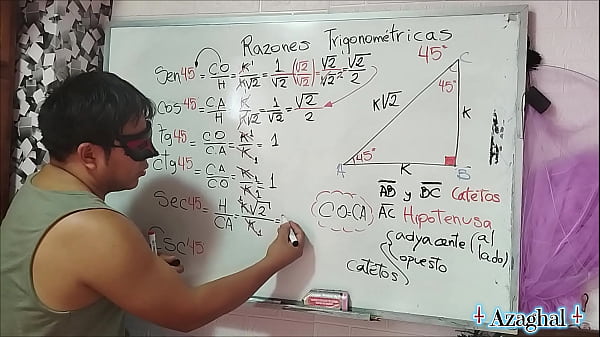 Razones Trigonométricas 45°
Sen45 = CO/H = K/K√2 = 1/√2 (√2/√2) = √2/√2² = √2/2
Cos45 = CA/H = K/K√2 = 1/√2 = √2/2
Tg45 = CO/CA = K/K = 1
Ctg45 = CA/CO = K/K = 1
Sec45 = H/CA = K√2/K =
Csc45
C
45°
K√2
K
A 45° K B
AB y BC Catetos
CO=CA
AC Hipotenusa
Catetos { adyacente (al lado)
opuesto
Azaghal